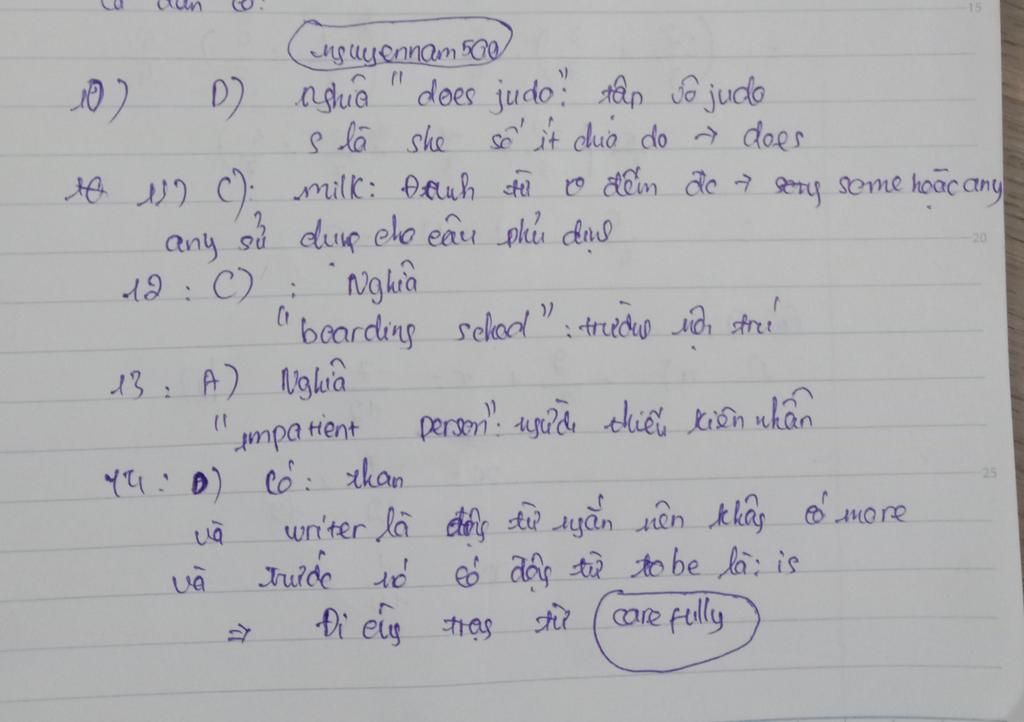 nguyennam500
10) D) Nghĩa "does judo": tập võ judo
S là she số ít chia do → does
11) C): milk: Danh từ o đếm đc → some hoặc any
any sử dụng cho câu phủ định
12: C): Nghĩa
"boarding school": trường nội trú
13: A) Nghĩa
"impatient person": người thiếu kiên nhẫn
14: D) Có: than
và writer là động từ ngắn nên không có more
và trước nó có động từ tobe là: is
⇒ Đi cùng trạng từ carefully